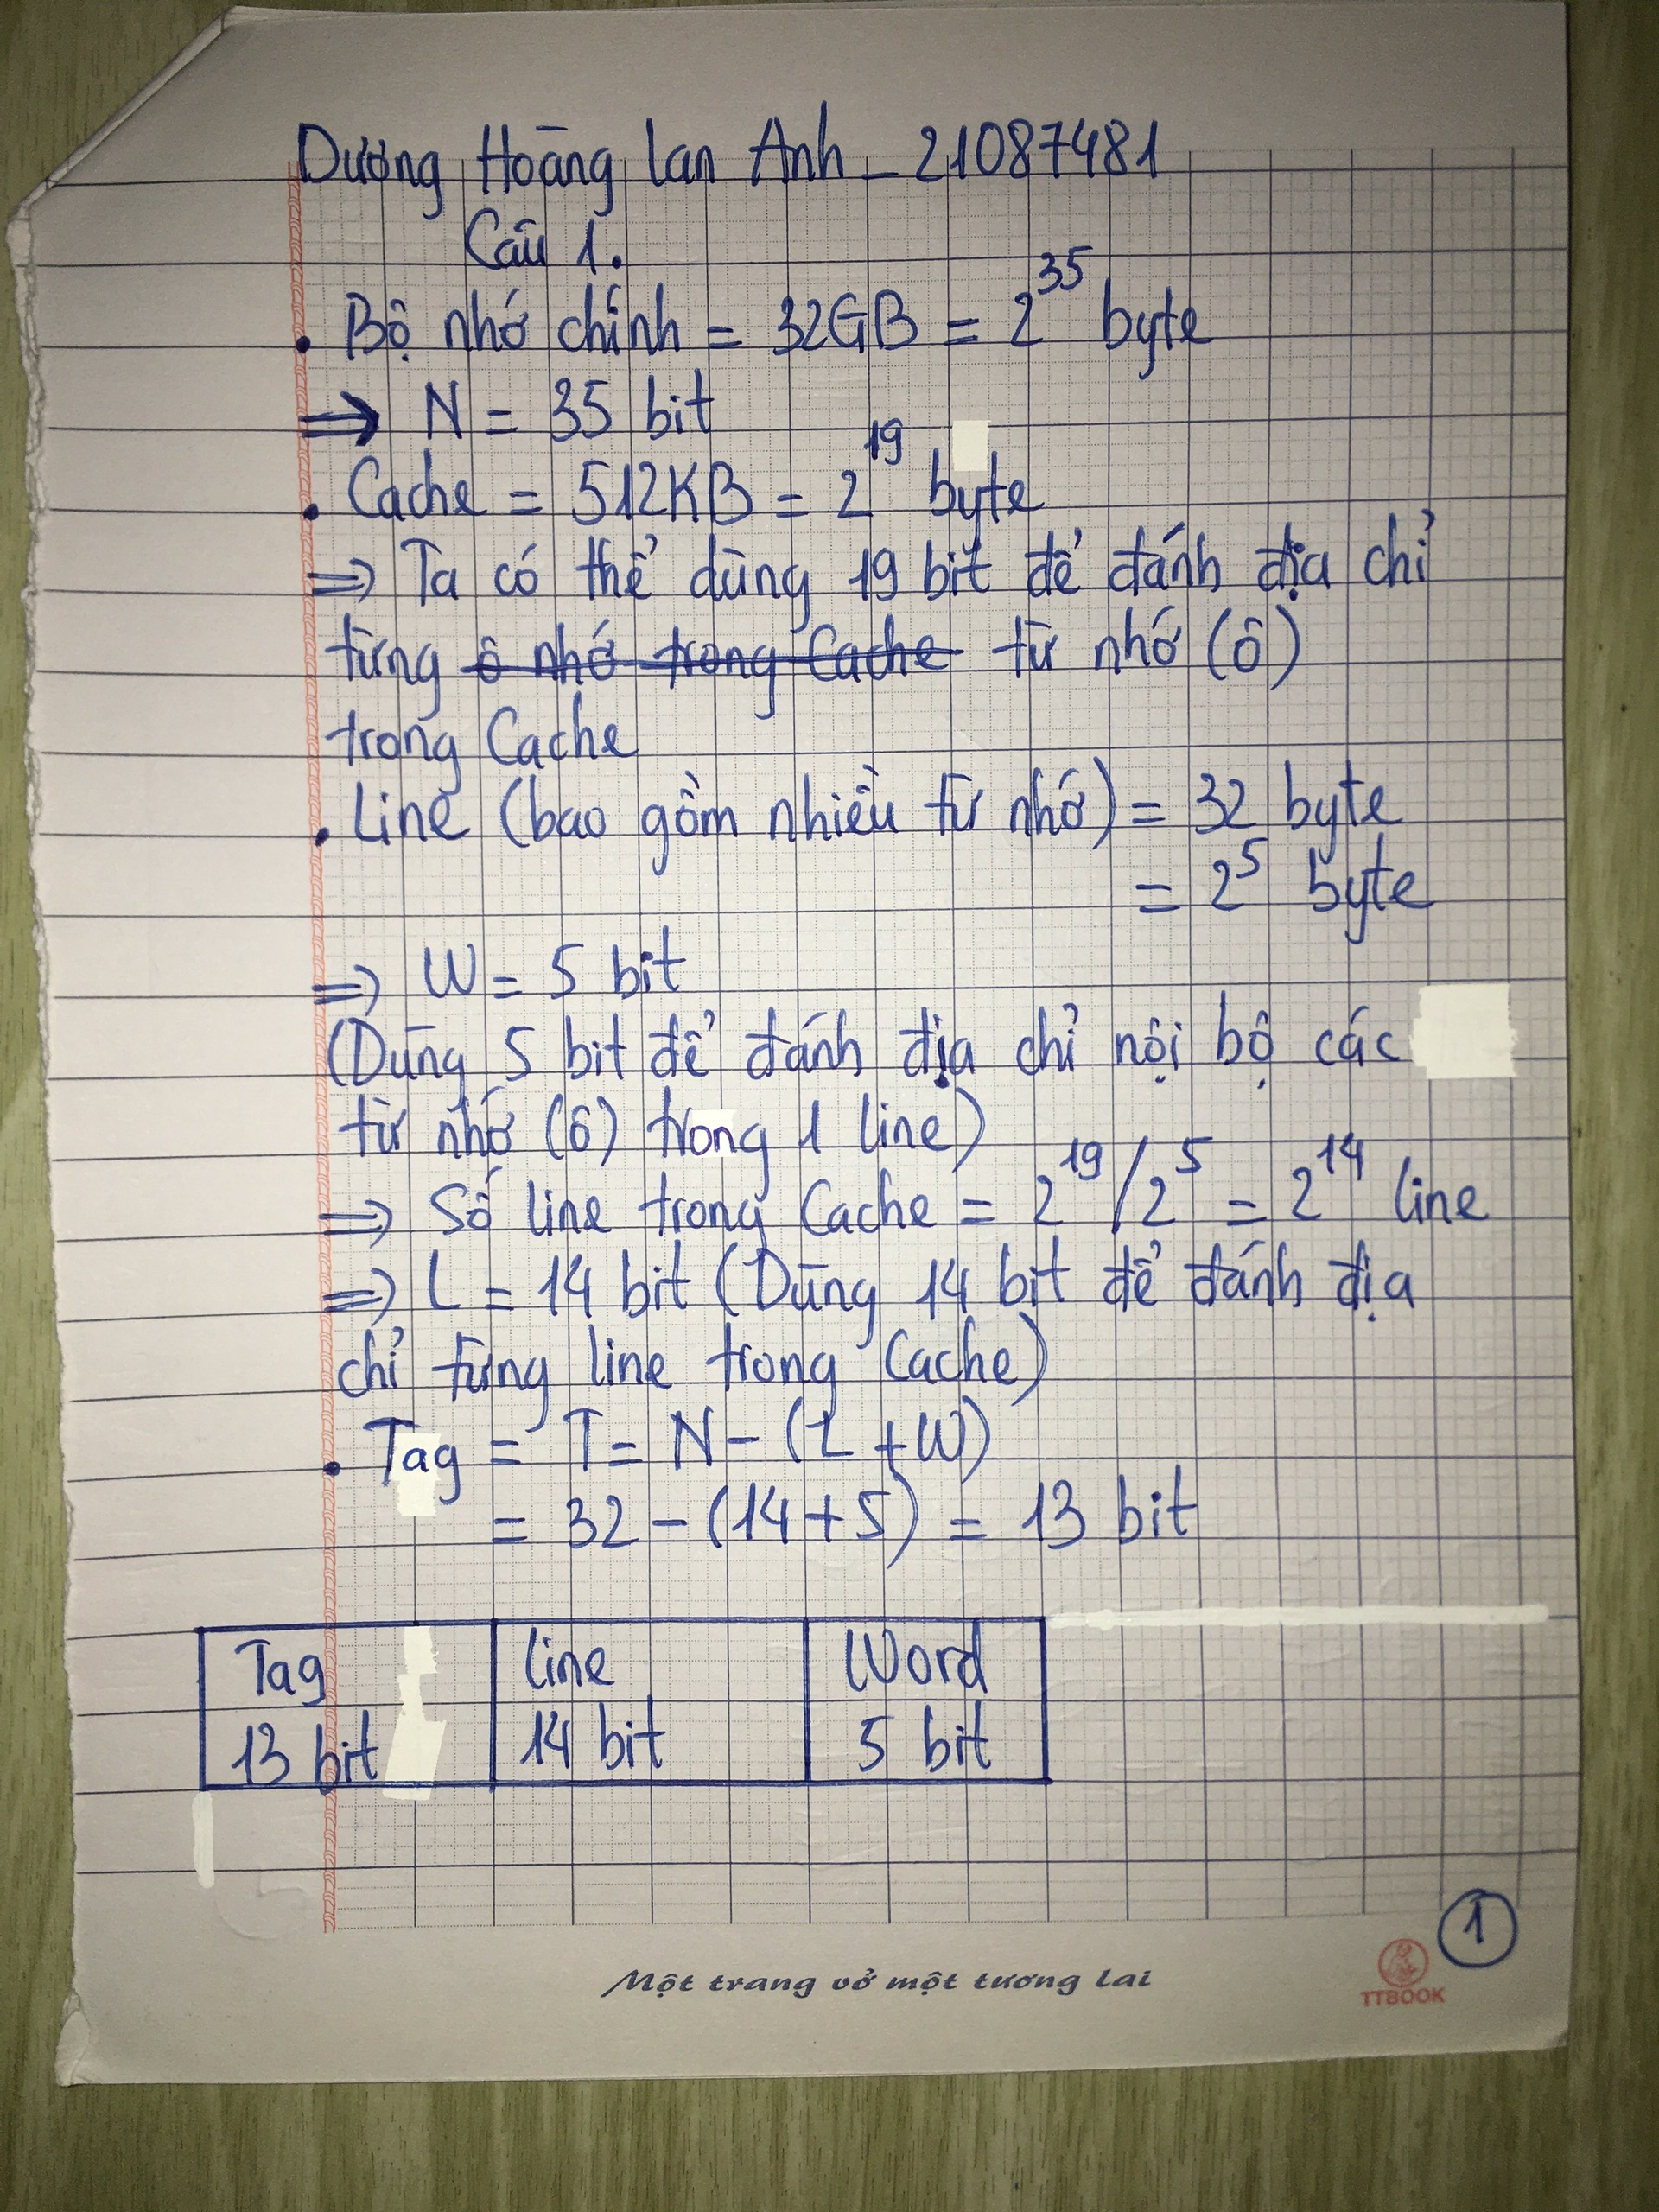 Dương Hoàng Lan Anh _ 21087481
Câu 1.
• Bộ nhớ chính = 32GB = 2^35 byte
⇒ N = 35 bit
• Cache = 512KB = 2^19 byte
⇒ Ta có thể dùng 19 bit để đánh địa chỉ
từng ô nhớ trong Cache từ nhớ (ô)
trong Cache
• Line (bao gồm nhiều từ nhớ) = 32 byte
= 2^5 byte
⇒ W = 5 bit
(Dùng 5 bit để đánh địa chỉ nội bộ các
từ nhớ (ô) trong 1 line)
⇒ Số line trong Cache = 2^19 / 2^5 = 2^14 line
⇒ L = 14 bit (Dùng 14 bit để đánh địa
chỉ từng line trong Cache)
• Tag = T = N - (L + W)
= 32 - (14 + 5) = 13 bit
Tag line Word
13 bit 14 bit 5 bit
1
Một trang vở một tương lai
TTBOOK